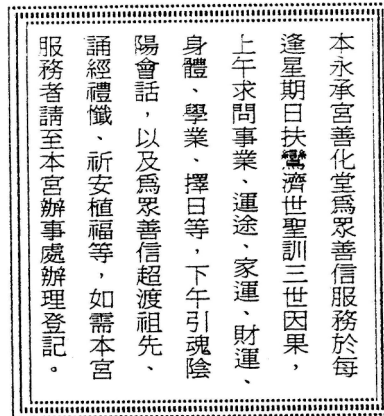 本永承宮善化堂爲眾善信服務於每
逢星期日扶鸞濟世聖訓三世因果，
上午求問事業、運途、家運、財運、
身體、學業、擇日等，下午引魂陰
陽會話，以及爲眾善信超渡祖先、
誦經禮懺、祈安植福等，如需本宮
服務者請至本宮辦事處辦理登記。